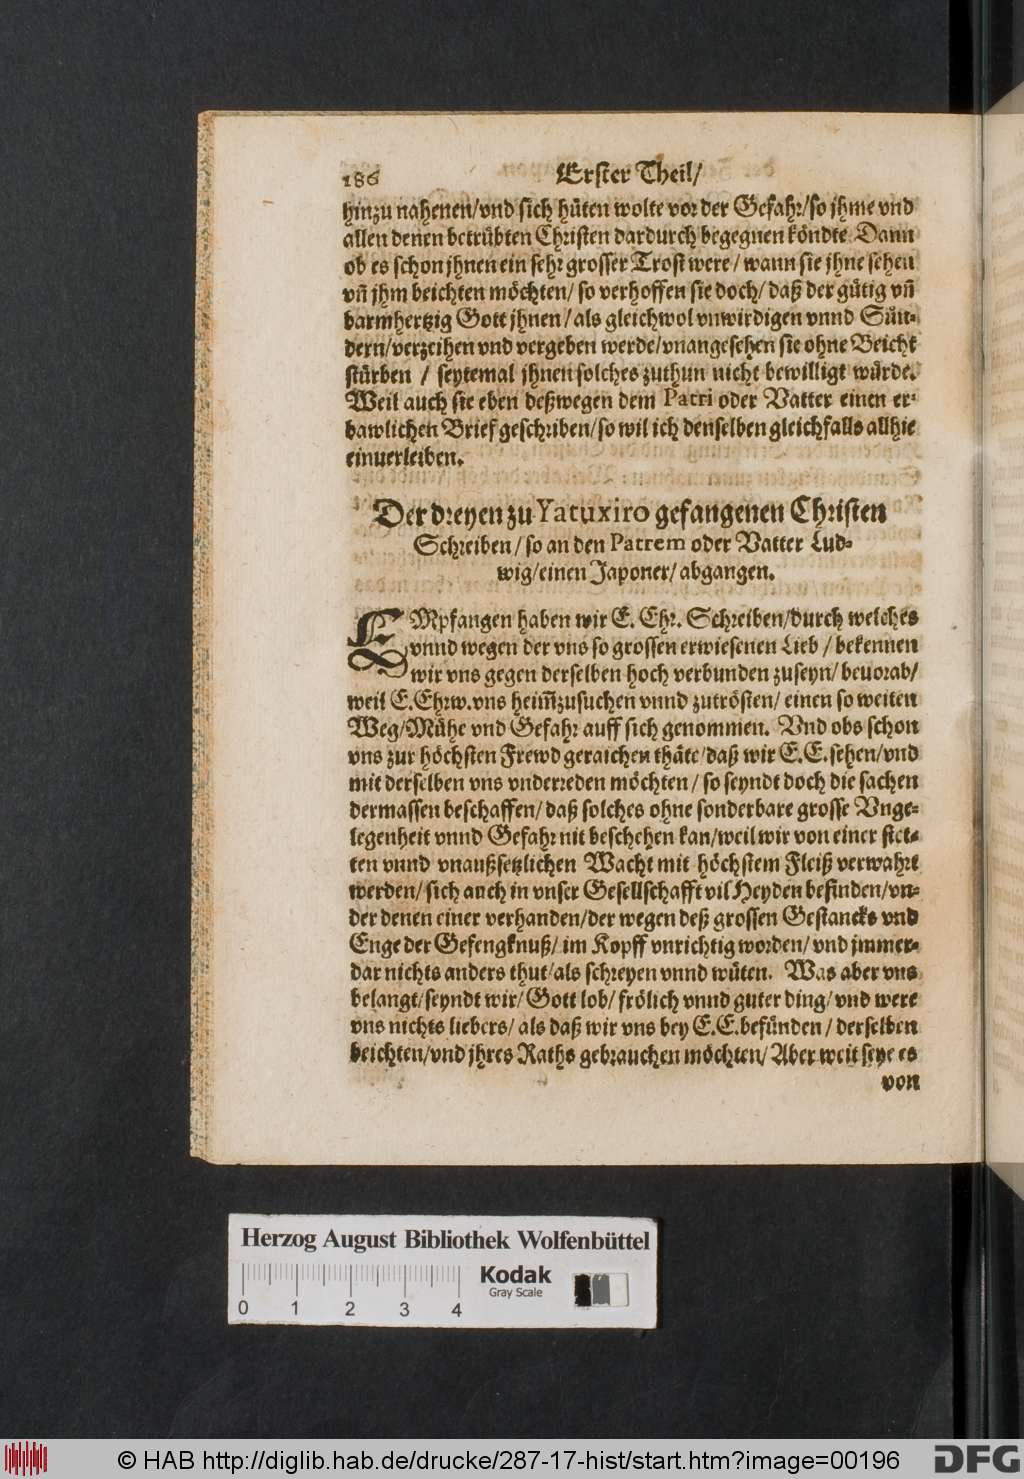 186 Erster Theil/
hinzu nahenen/vnd sich hüten wolte vor der Gefahr/so jhme vnd
allen denen betrübten Christen dardurch begegnen köndte. Dann
ob es schon jhnen ein sehr grosser Trost were/ wann sie jhne sehen
vñ jhm beichten möchten/ so verhoffen sie doch/ daß der gütig vñ
barmhertzig Gott jhnen/ als gleichwol vnwirdigen vnnd Sün-
dern/verzeihen vnd vergeben werde/vnangesehen sie ohne Beicht
stürben / seytemal jhnen solches zuthun nicht bewilligt würde.
Weil auch sie eben deßwegen dem Patri oder Vatter einen er-
bawlichen Brief geschriben/so wil ich denselben gleichfalls allhie
einuerleiben.
Der dreyen zu Yatuxiro gefangenen Christen
Schreiben/ so an den Patrem oder Vatter Lud-
wig/einen Japoner/ abgangen.
EMpfangen haben wir E. Ehr. Schreiben/durch welches
vnnd wegen der vns so grossen erwiesenen Lieb / bekennen
wir vns gegen derselben hoch verbunden zuseyn/ beuorab/
weil E.Ehrw.vns heim̃zusuchen vnnd zutrösten/ einen so weiten
Weg/Mühe vnd Gefahr auff sich genommen. Vnd obs schon
vns zur höchsten Frewd geraichen thäte/daß wir E.E.sehen/vnd
mit derselben vns vnderreden möchten/ so seyndt doch die sachen
dermassen beschaffen/ daß solches ohne sonderbare grosse Vnge-
legenheit vnnd Gefahr nit beschehen kan/weil wir von einer stet-
ten vnnd vnaußsetzlichen Wacht mit höchstem Fleiß verwahrt
werden/ sich auch in vnser Gesellschafft vil Heyden befinden/vn-
der denen einer verhanden/der wegen deß grossen Gestancks vnd
Enge der Gefengknuß/ im Kopff vnrichtig worden/ vnd jmmer-
dar nichts anders thut/als schreyen vnnd wüten. Was aber vns
belangt/seyndt wir/ Gott lob/ frölich vnnd guter ding/ vnd were
vns nichts liebers/ als daß wir vns bey E.E.befünden / derselben
beichten/vnd jhres Raths gebrauchen möchten/ Aber weit seye es
von
Herzog August Bibliothek Wolfenbüttel
Kodak
Gray Scale
0 1 2 3 4
© HAB http://diglib.hab.de/drucke/287-17-hist/start.htm?image=00196
DFG